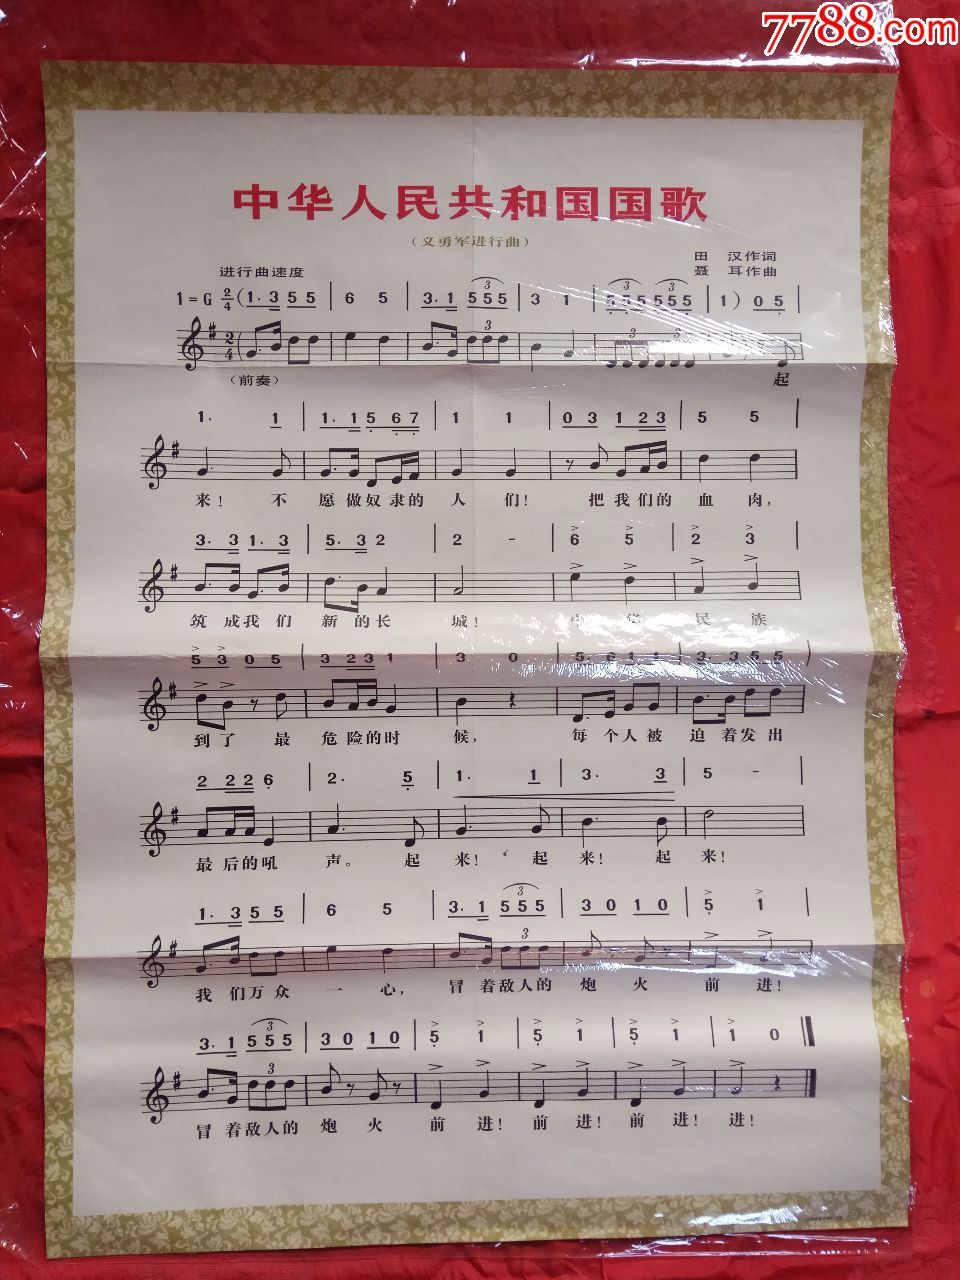 7788.com
中华人民共和国国歌
（义勇军进行曲）
田 汉作词
聂 耳作曲
进行曲速度
1=G 2/4 (1. 3 5 5 | 6 5 | 3. 1 5 5 5 | 3 1 | 5 5 5 5 5 5 | 1) 0 5 |
（前奏） 起
1. 1 | 1. 1 5 6 7 | 1 1 | 0 3 1 2 3 | 5 5 |
来! 不 愿 做奴 隶的 人 们! 把我们的 血 肉,
3. 3 1. 3 | 5. 3 2 | 2 - | 6 5 | 2 3 |
筑 成我 们 新 的长 城! 中 华 民 族
5 3 0 5 | 3 2 3 1 | 3 0 | 5 6 1 1 | 3. 3 5 5 |
到了 最 危 险的时 候, 每 个人被 迫 着发出
2 2 2 6 | 2. 5 | 1. 1 | 3. 3 | 5 - |
最 后的吼 声。 起 来! 起 来! 起 来!
1. 3 5 5 | 6 5 | 3. 1 5 5 5 | 3 0 1 0 | 5 1 |
我 们万 众 一 心, 冒 着敌人的 炮 火 前 进!
3. 1 5 5 5 | 3 0 1 0 | 5 1 | 5 1 | 5 1 | 1 0
冒 着敌人的 炮 火 前 进! 前 进! 前 进! 进!